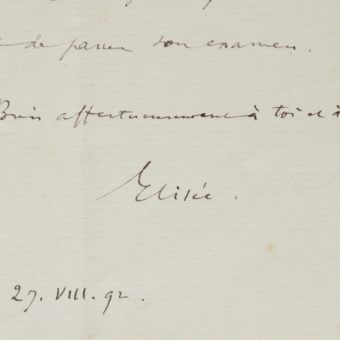 de passer son examen.
affectueusement à toi et à
Elisée.
27. VIII. 92.